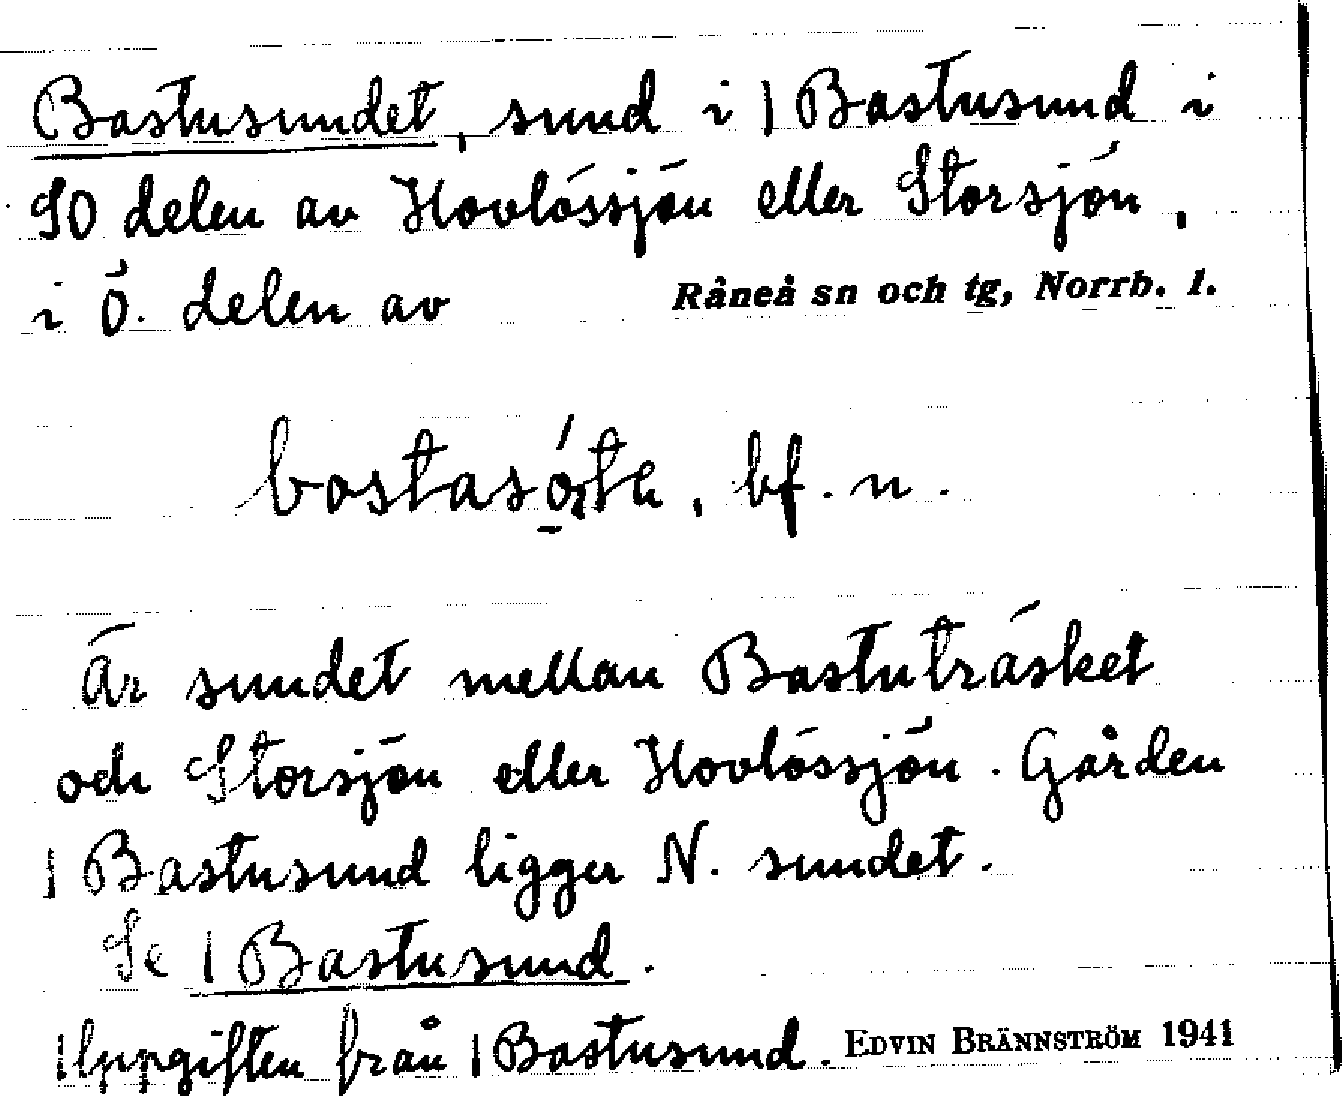 Bastusundet, sund i | Bastusund i
SO delen av Hovlössjön eller Storsjön,
i Ö. delen av Råneå sn och tg, Norrb. l.
bf. n.
Är sundet mellan Bastuträsket
och Storsjön eller Hovlössjön. Gården
| Bastusund ligger N. sundet.
Se | Bastusund.
Uppgiften från | Bastusund. EDVIN BRÄNNSTRÖM 1941